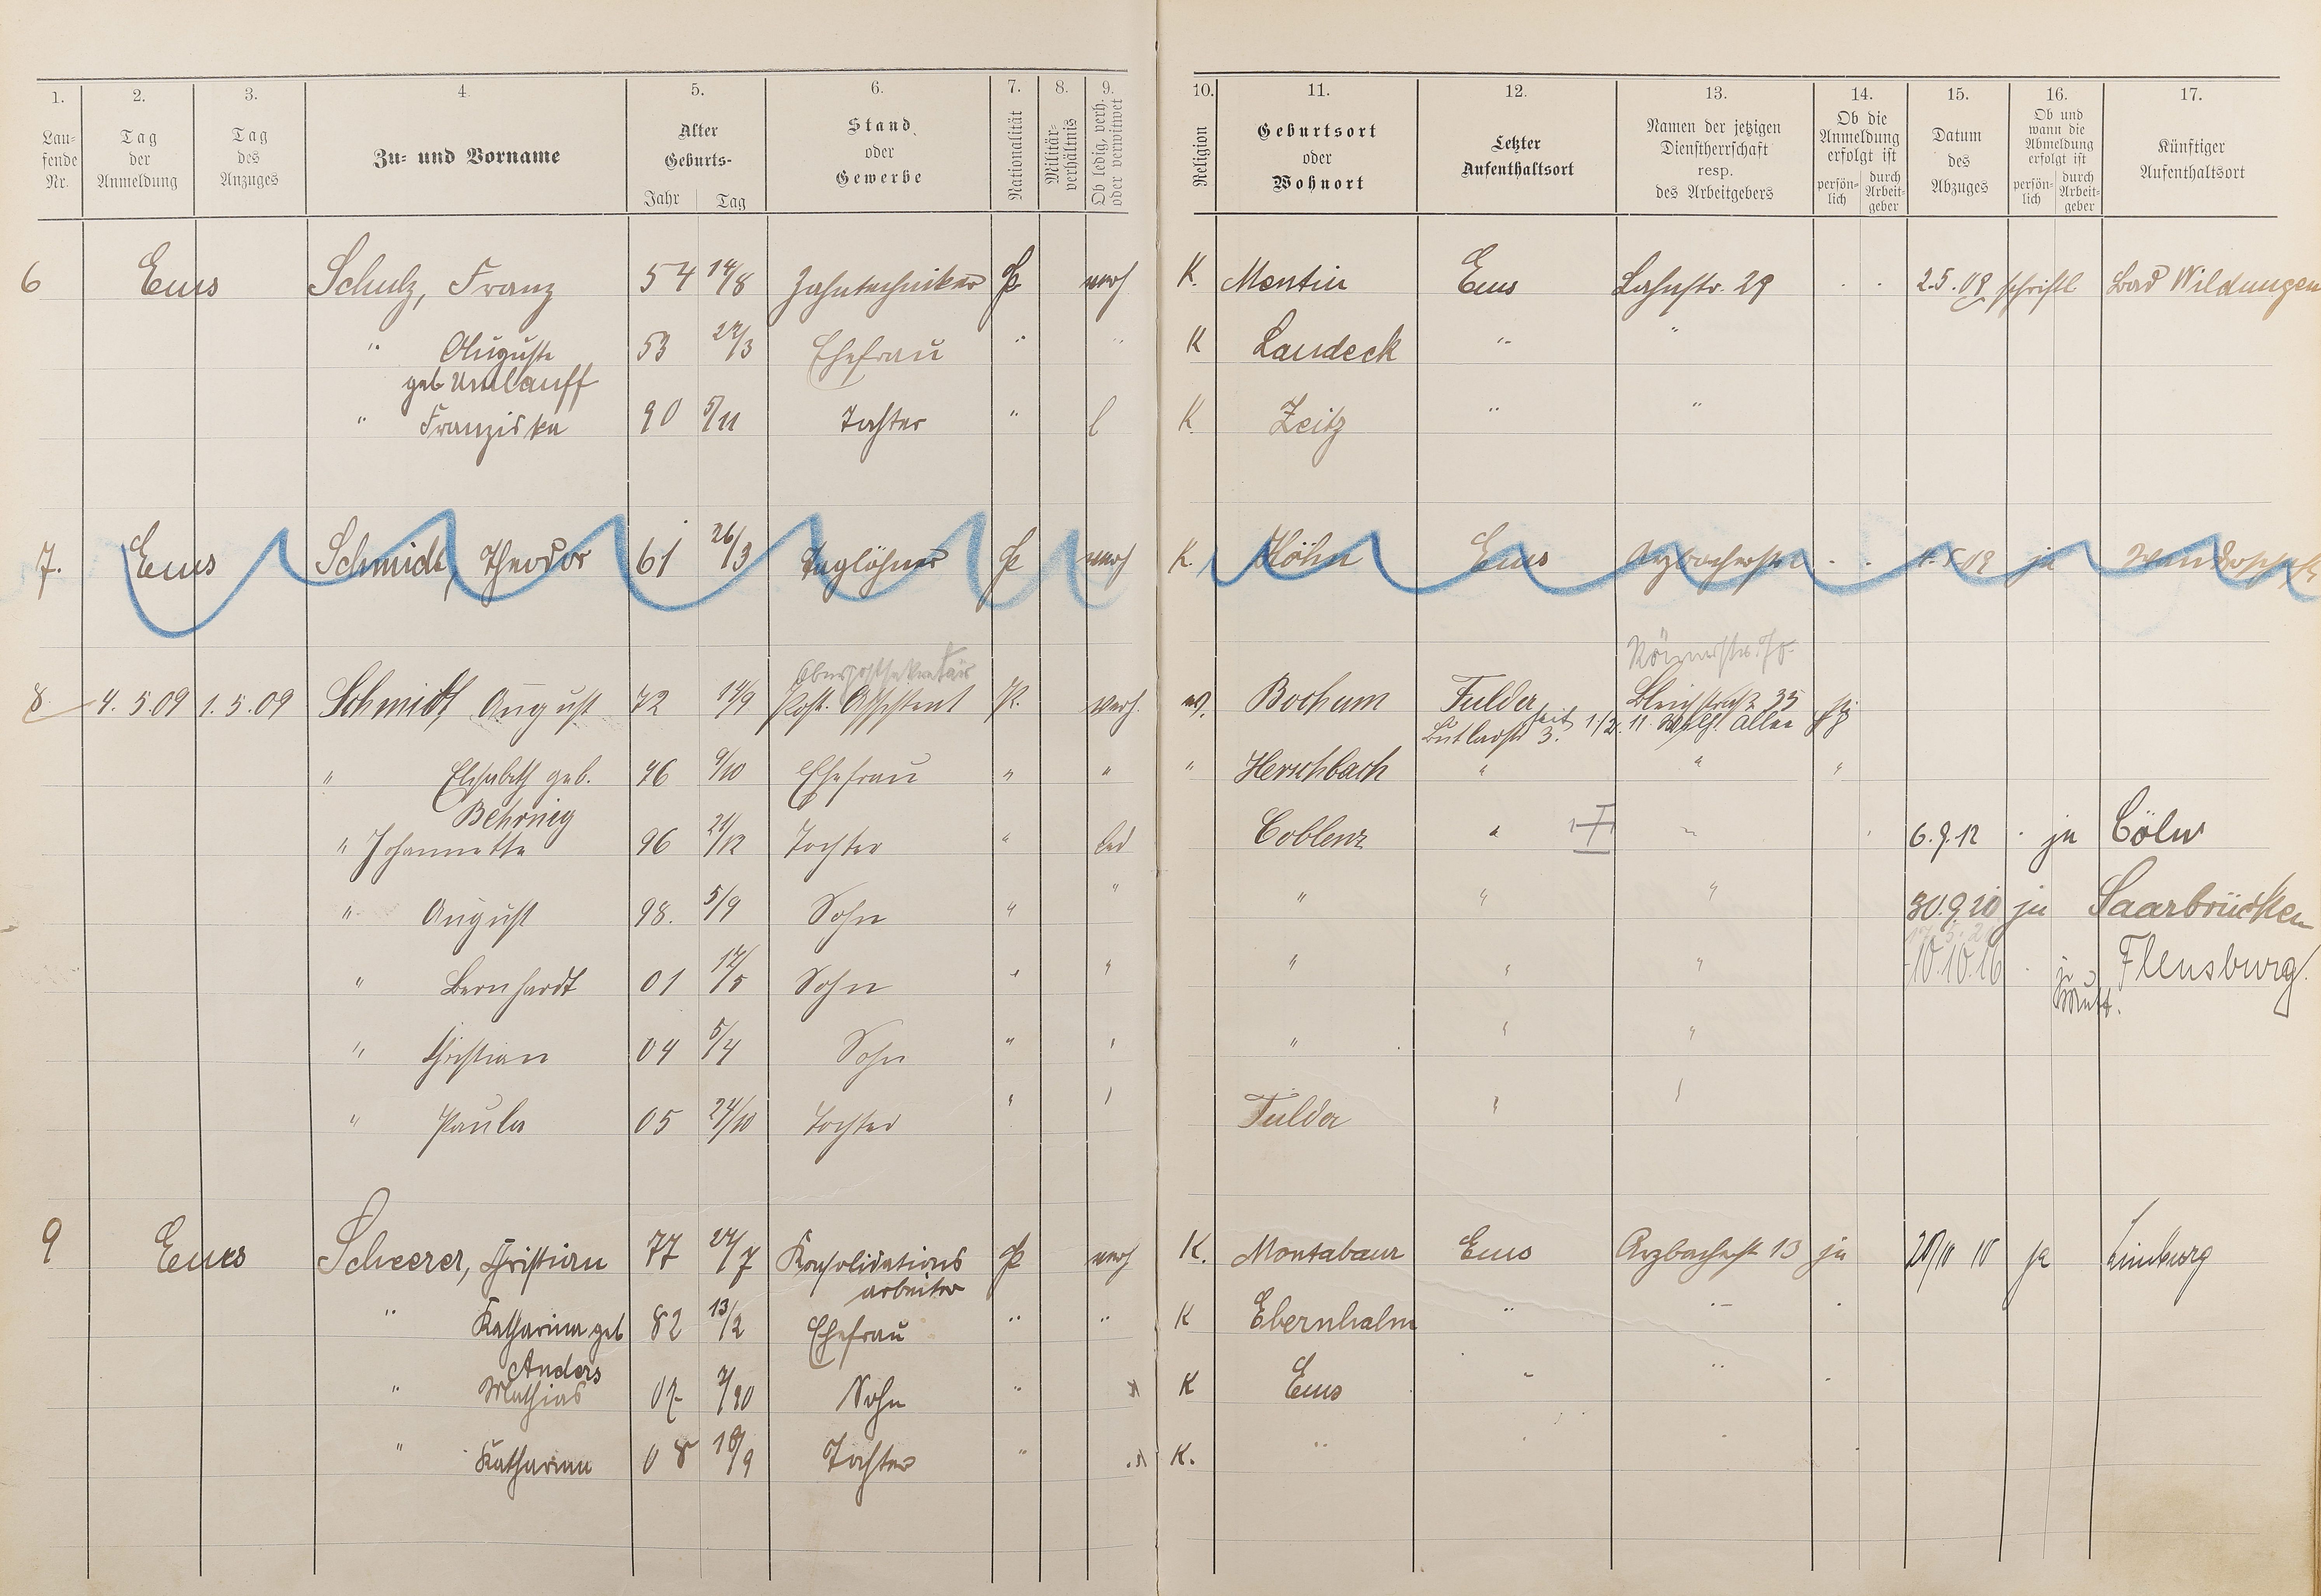 1. 2. 3. 4. 5. 6. 7. 8. 9. 10. 11. 12. 13. 14. 15. 16. 17.
Laufende Nr.
Tag der Anmeldung
Tag des Anzuges
Zu- und Vorname
Alter Geburts-
Jahr Tag
Stand oder Gewerbe
Nationalität
Militärverhältnis
Ob ledig, verh. oder verwitwet
Religion
Geburtsort oder Wohnort
Letzter Aufenthaltsort
Namen der jetzigen Dienstherrschaft resp. des Arbeitgebers
Ob die Anmeldung erfolgt ist
persönlich durch Arbeitgeber
Datum des Abzuges
Ob und wann die Abmeldung erfolgt ist
persönlich durch Arbeitgeber
Künftiger Aufenthaltsort
6 Ems Schulz, Franz 54 14/8 Zahntechniker verh K. Ems Lahnstr. 29 2.5.09 schriftl Bad Wildungen
" Auguste 53 Ehefrau " " K Landeck " "
geb Umlauff
" Franziska 90 5/11 Tochter " l K Zeitz " "
7. Ems Schmidt, Theodor 61 26/3 Taglöhner verh K. Höhn Ems ja
Oberpostsekretair
8 4.5.09 1.5.09 Schmidt August 72 14/9 Post-Assistent Pr. verh. Bochum Fulda Bleichstraße 35
seit
" Elisabeth geb. 76 9/10 Ehefrau " " " Herschbach " " "
" Johannette 96 21/12 Tochter " led Coblenz " " 6.9.12 ja Cöln
" August 98. 5/9 Sohn " " " " " 30.9.20 ja Saarbrücken
" Bernhardt 01 17/5 Sohn " " " " " 10.10.16 ja Flensburg
" Christian 04 5/4 Sohn " " " " "
" Paula 05 24/10 Tochter " " Fulda " "
9 Ems Scheerer, Christian 77 24/7 Konsolidations verh K. Montabaur Ems Arzbachstr 13 ja ja Limburg
arbeiter
" Katharina geb 82 13/2 Ehefrau " " K Ebernhahn " "
Anders
" Mathias 07 Sohn " K Ems " "
" Katharina 08 Tochter " K. "